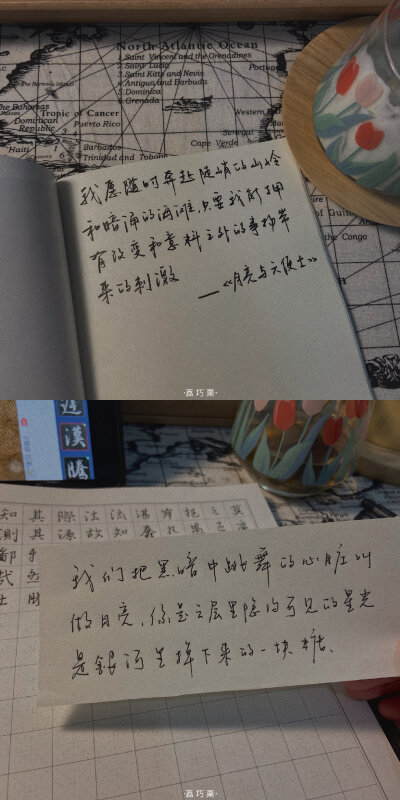 North Atlantic Ocean
1. Saint Vincent and the Grenadines
2. Saint Lucia
3. Saint Kitts and Nevis
4. Antigua and Barbuda
5. Dominica
6. Grenada
Portug
The Bahamas
Tropic of Cancer
Dominican
Republic
Puerto Rico
Haiti
Barbados
Trinidad and Tobago
Western
Senegal
Cape Verde
of Guin
the Congo
我愿随时奔赴陡峭的山岭
和暗涌的海滩,只要我能拥
有改变和意料之外的事物带
来的刺激
——《月亮与六便士》
·荔巧栗·
漢
騰
知其際法流湛寂挹之莫
測其源故知
我们把黑暗中跳舞的心脏叫
做月亮,你是云层里隐约可见的星光
是銀河里掉下来的一块糖、
·荔巧栗·